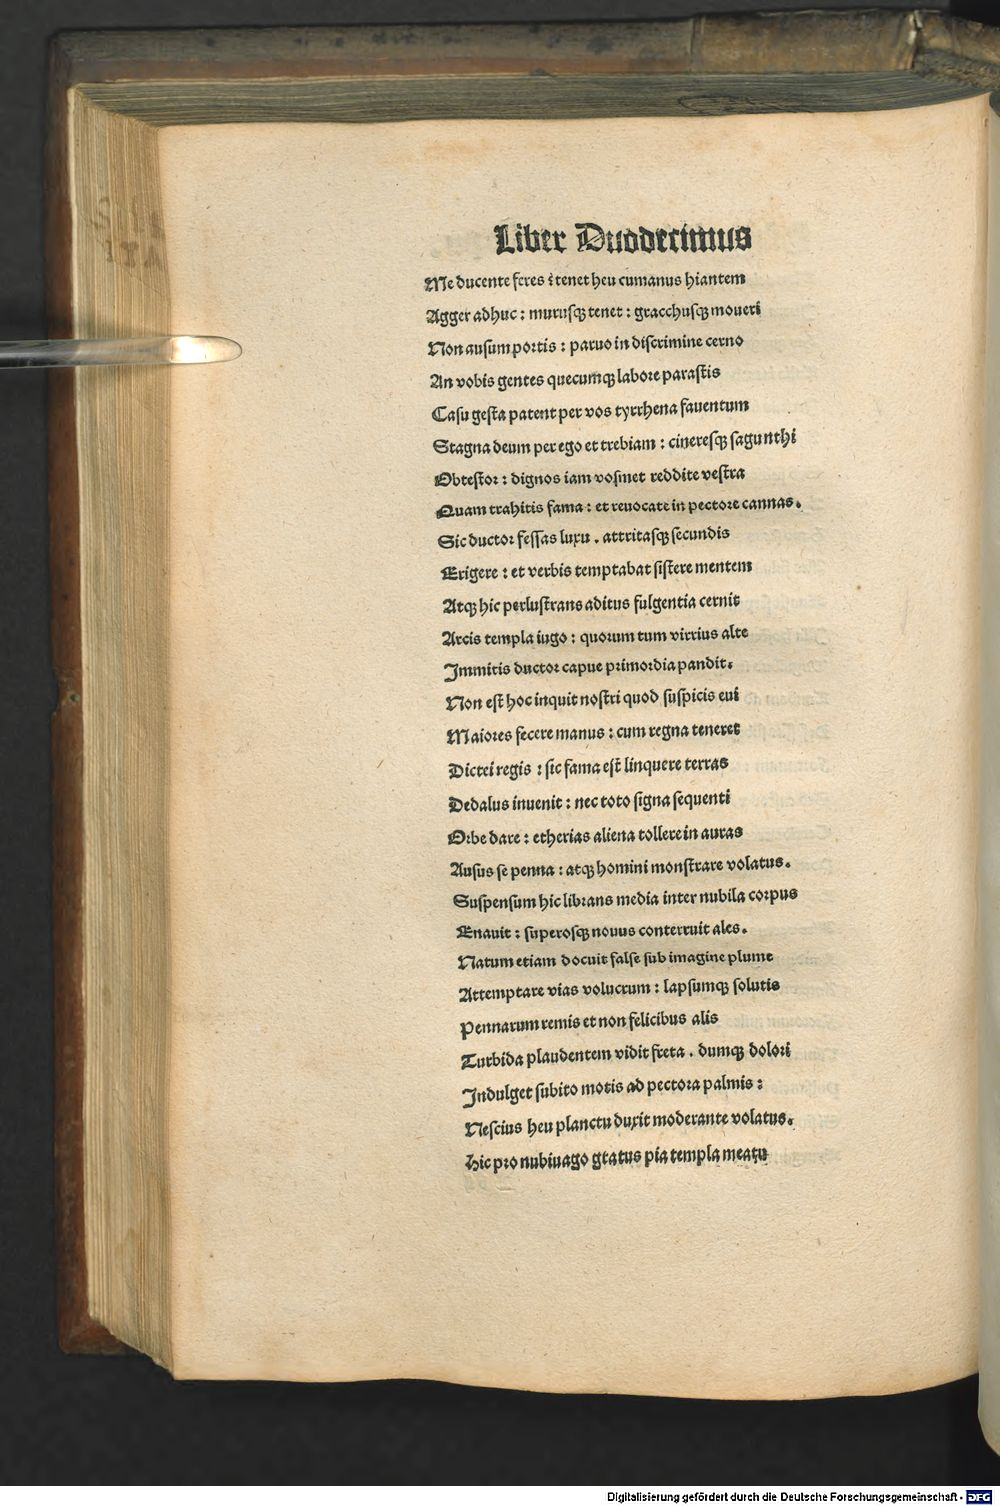 Liber Duodecimus
Me ducente feres: tenet heu cumanus hiantem
Agger adhuc : murusqʒ tenet : gracchusqʒ moueri
Non ausum portis : paruo in discrimine cerno
An vobis gentes quecumqʒ labore parastis
Casu gesta patent per vos tyrrhena fauentum
Stagna deum per ego et trebiam : cineresqʒ sagunthi
Obtestor : dignos iam vosmet reddite vestra
Quam trahitis fama : et reuocate in pectore cannas.
Sic ductor fessas luxu . attritasqʒ secundis
Erigere : et verbis temptabat sistere mentem
Atqʒ hic perlustrans aditus fulgentia cernit
Arcis templa iugo : quorum tum virrius alte
Immitis ductor capue primordia pandit.
Non est hoc inquit nostri quod suspicis eui
Maiores fecere manus : cum regna teneret
Dictei regis : sic fama est linquere terras
Dedalus inuenit : nec toto signa sequenti
Orbe dare : etherias aliena tollere in auras
Ausus se penna : atqʒ homini monstrare volatus.
Suspensum hic librans media inter nubila corpus
Enauit : superosqʒ nouus conterruit ales.
Natum etiam docuit false sub imagine plume
Attemptare vias volucrum : lapsumqʒ solutis
Pennarum remis et non felicibus alis
Turbida plaudentem vidit freta . dumqʒ dolori
Indulget subito motis ad pectora palmis :
Nescius heu planctu duxit moderante volatus.
Hic pro nubiuago gtatus pia templa meatu
Digitalisierung gefördert durch die Deutsche Forschungsgemeinschaft - DFG